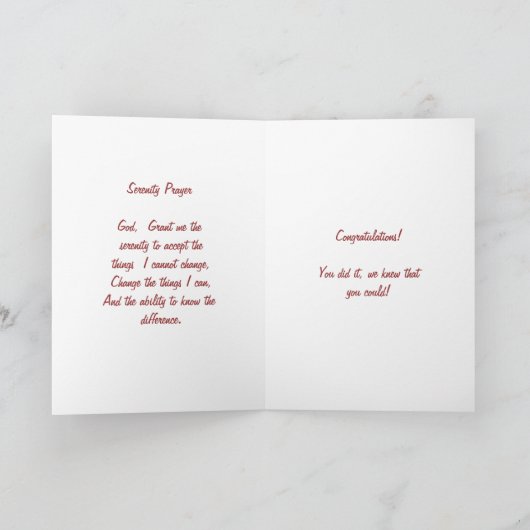 Serenity Prayer
God, Grant me the
serenity to accept the
things I cannot change,
Change the things I can,
And the ability to know the
difference.
Congratulations!
You did it, we knew that
you could!